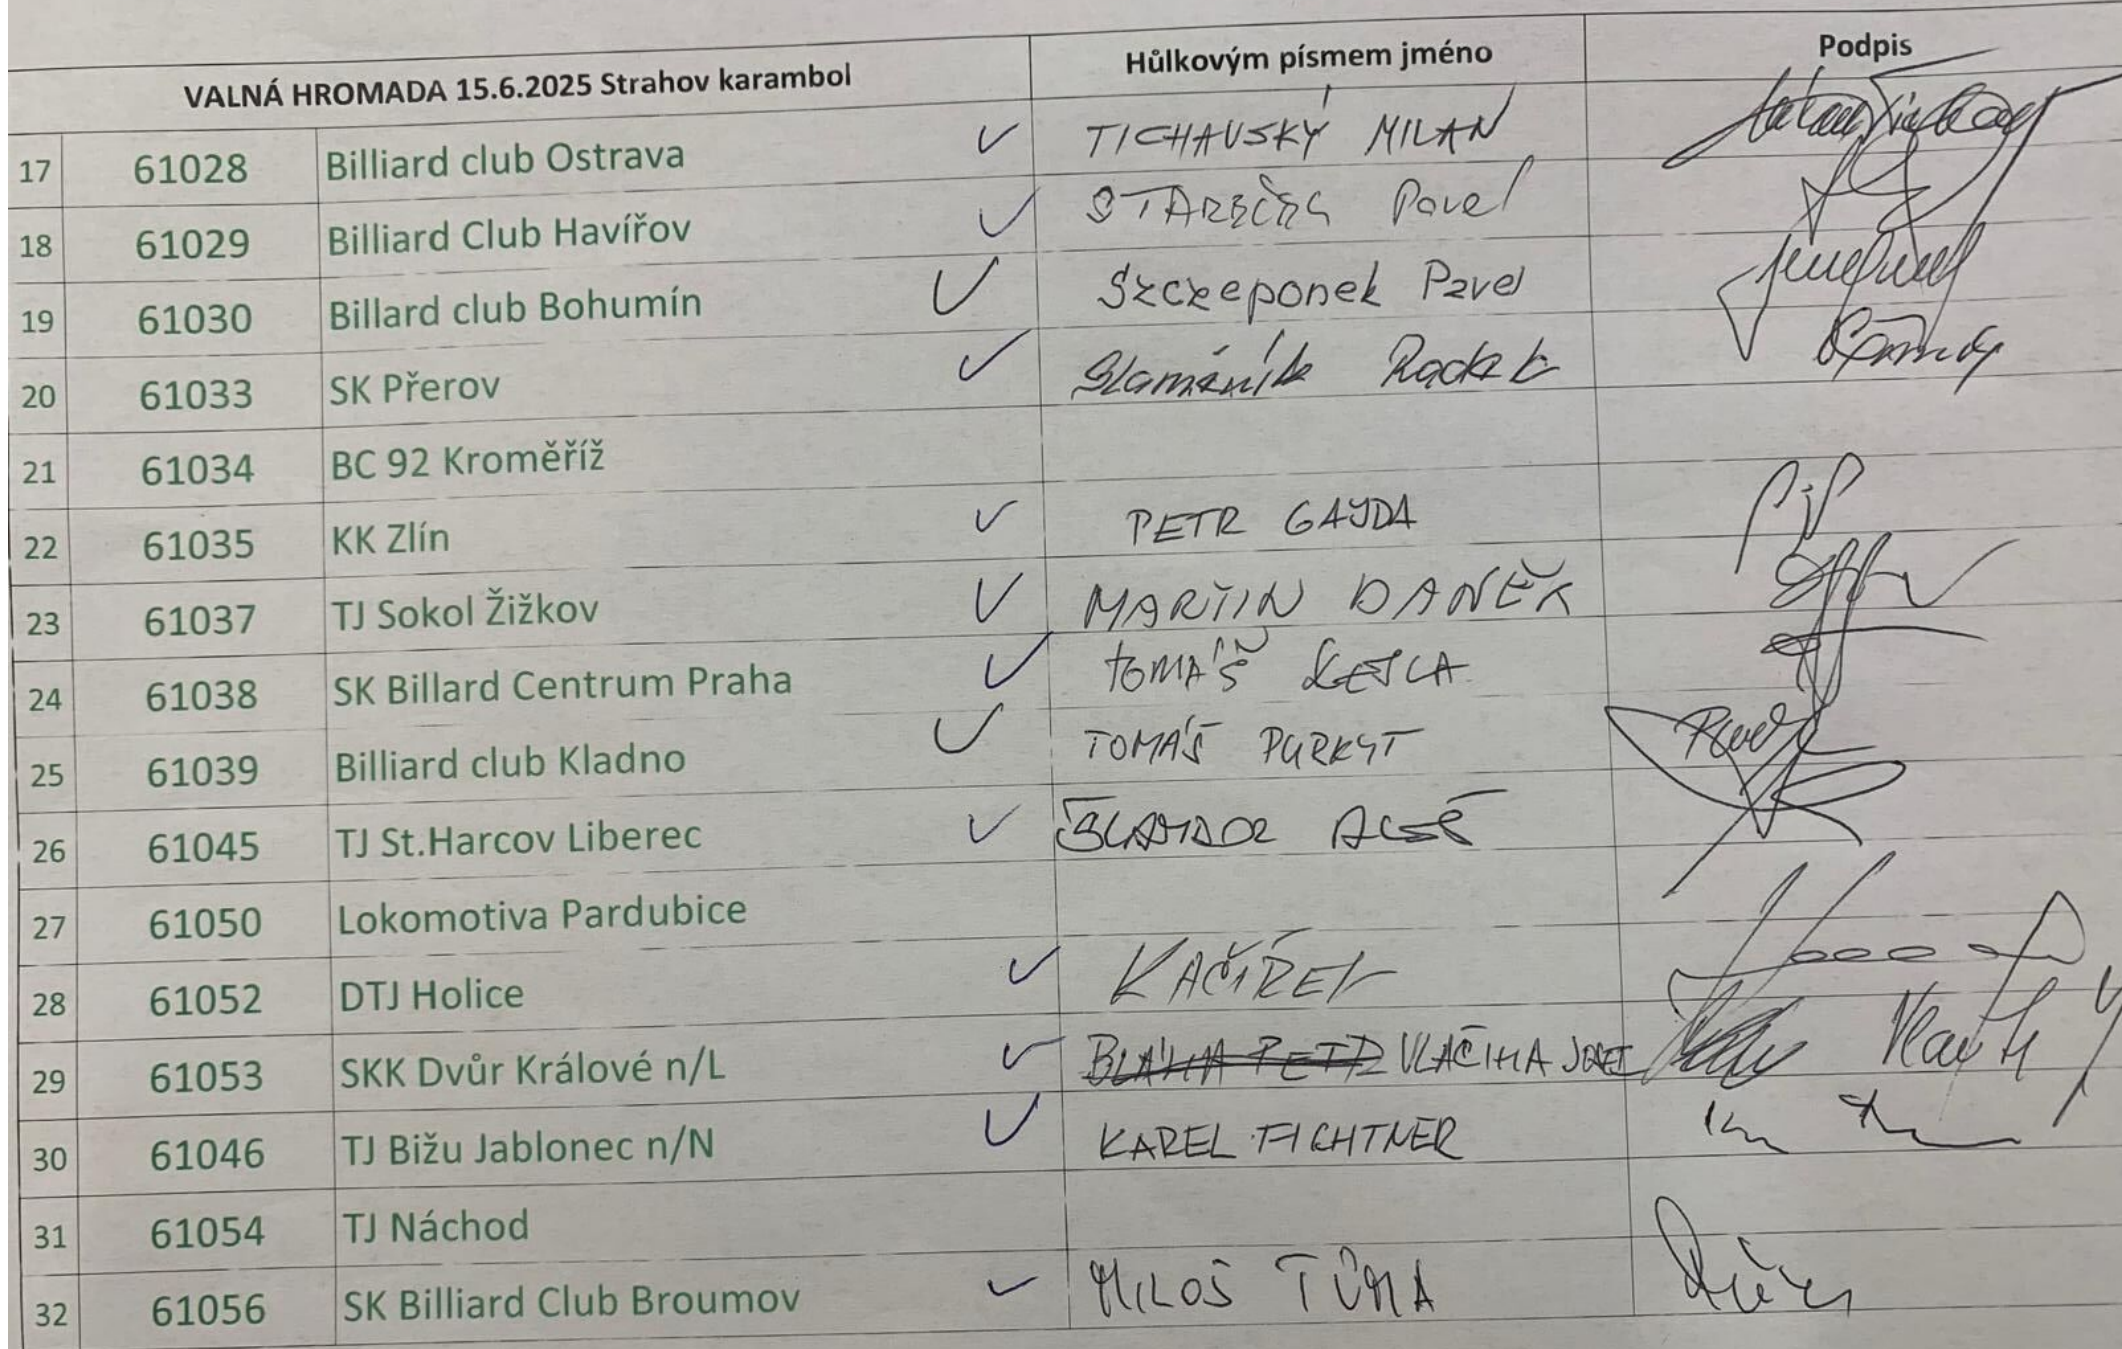 VALNÁ HROMADA 15.6.2025 Strahov karambol Hůlkovým písmem jméno Podpis
17 61028 Billiard club Ostrava ✓ TICHAVSKÝ MILAN
18 61029 Billiard Club Havířov ✓ Pavel
19 61030 Billard club Bohumín ✓ Szczeponek Pavel
20 61033 SK Přerov ✓ Slaměník Radek
21 61034 BC 92 Kroměříž
22 61035 KK Zlín ✓ PETR GAJDA
23 61037 TJ Sokol Žižkov ✓ MARTIN DANĚK
24 61038 SK Billard Centrum Praha ✓ TOMÁŠ
25 61039 Billiard club Kladno ✓ TOMÁŠ PURKYT
26 61045 TJ St.Harcov Liberec ✓
27 61050 Lokomotiva Pardubice
28 61052 DTJ Holice ✓ KAČÍREK
29 61053 SKK Dvůr Králové n/L ✓ BLÁHA PETR VLAČIHA JOSEF
30 61046 TJ Bižu Jablonec n/N ✓ KAREL FICHTNER
31 61054 TJ Náchod
32 61056 SK Billiard Club Broumov ✓ MILOŠ TŮMA